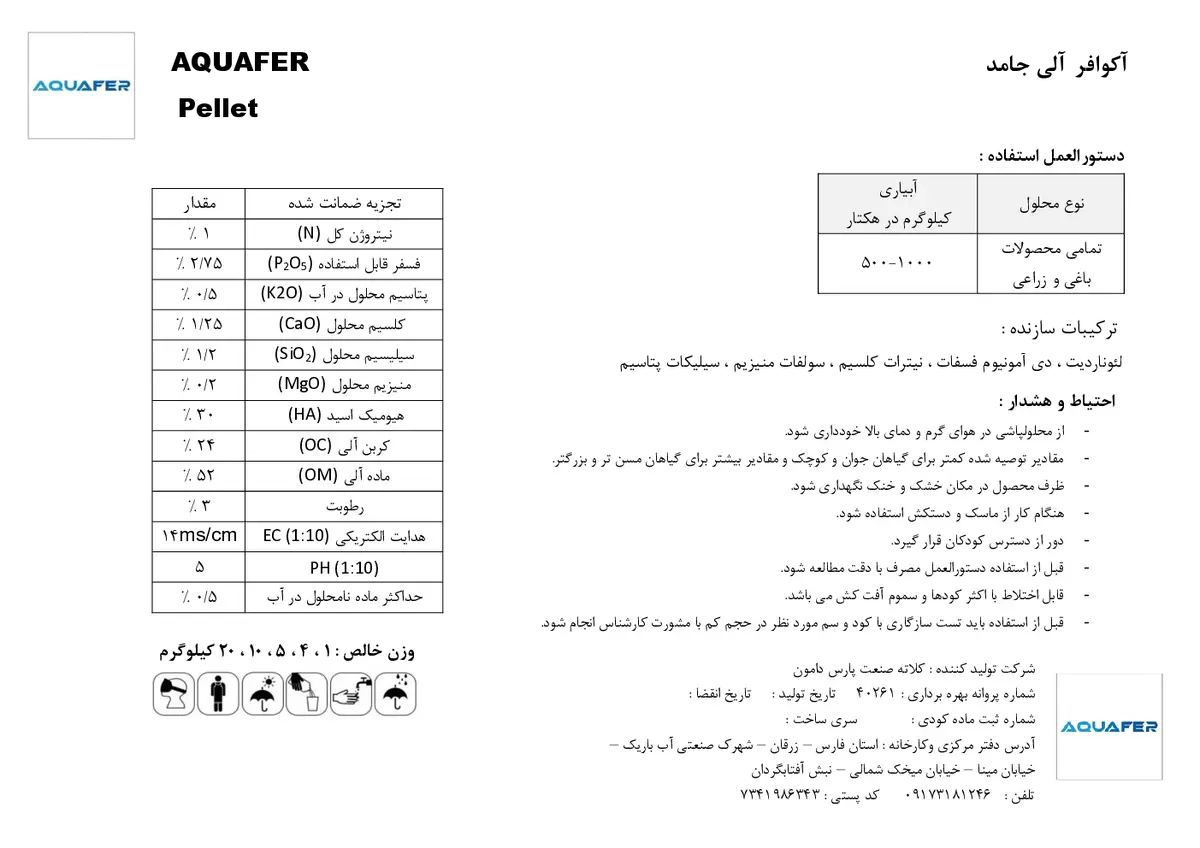 AQUAFER
AQUAFER
Pellet
آکوافر آلی جامد
دستورالعمل استفاده :
نوع محلول	آبیاری کیلوگرم در هکتار
تمامی محصولات باغی و زراعی	۵۰۰-۱۰۰۰
ترکیبات سازنده :
لئوناردیت ، دی آمونیوم فسفات ، نیترات کلسیم ، سولفات منیزیم ، سیلیکات پتاسیم
احتیاط و هشدار :
- از محلولپاشی در هوای گرم و دمای بالا خودداری شود.
- مقادیر توصیه شده کمتر برای گیاهان جوان و کوچک و مقادیر بیشتر برای گیاهان مسن تر و بزرگتر.
- ظرف محصول در مکان خشک و خنک نگهداری شود.
- هنگام کار از ماسک و دستکش استفاده شود.
- دور از دسترس کودکان قرار گیرد.
- قبل از استفاده دستورالعمل مصرف با دقت مطالعه شود.
- قابل اختلاط با اکثر کودها و سموم آفت کش می باشد.
- قبل از استفاده باید تست سازگاری با کود و سم مورد نظر در حجم کم با مشورت کارشناس انجام شود.
شرکت تولید کننده : کلاته صنعت پارس دامون
شماره پروانه بهره برداری : ۴۰۲۶۱ تاریخ تولید : تاریخ انقضا :
شماره ثبت ماده کودی : سری ساخت :
آدرس دفتر مرکزی وکارخانه : استان فارس – زرقان – شهرک صنعتی آب باریک –
خیابان مینا – خیابان میخک شمالی – نبش آفتابگردان
تلفن : ۰۹۱۷۳۱۸۱۲۴۶ کد پستی : ۷۳۴۱۹۸۶۳۴۳
AQUAFER
تجزیه ضمانت شده	مقدار
نیتروژن کل (N)	۱ ٪
فسفر قابل استفاده (P₂O₅)	۲/۷۵ ٪
پتاسیم محلول در آب (K2O)	۰/۵ ٪
کلسیم محلول (CaO)	۱/۲۵ ٪
سیلیسیم محلول (SiO₂)	۱/۲ ٪
منیزیم محلول (MgO)	۰/۲ ٪
هیومیک اسید (HA)	۳۰ ٪
کربن آلی (OC)	۲۴ ٪
ماده آلی (OM)	۵۲ ٪
رطوبت	۳ ٪
هدایت الکتریکی EC (1:10)	۱۴ms/cm
PH (1:10)	۵
حداکثر ماده نامحلول در آب	۰/۵ ٪
وزن خالص : ۱ ، ۴ ، ۵ ، ۱۰ ، ۲۰ کیلوگرم